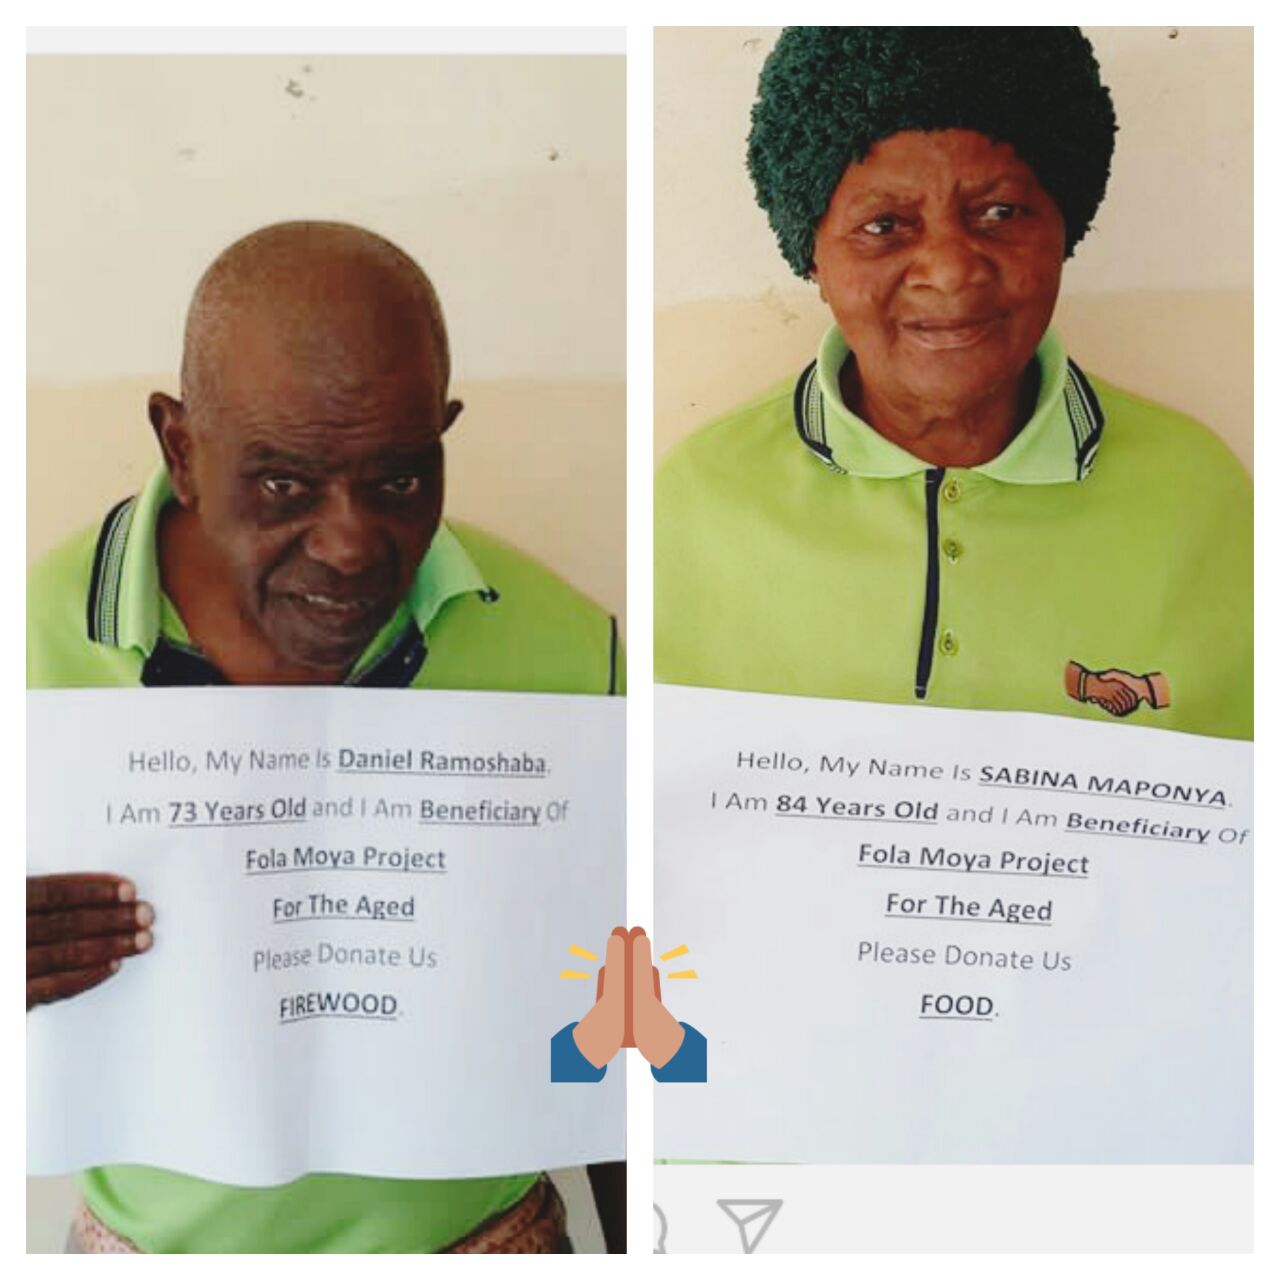 Hello, My Name Is Daniel Ramoshaba.
I Am 73 Years Old and I Am Beneficiary Of
Fola Moya Project
For The Aged
Please Donate Us
FIREWOOD.
Hello, My Name Is SABINA MAPONYA.
I Am 84 Years Old and I Am Beneficiary Of
Fola Moya Project
For The Aged
Please Donate Us
FOOD.